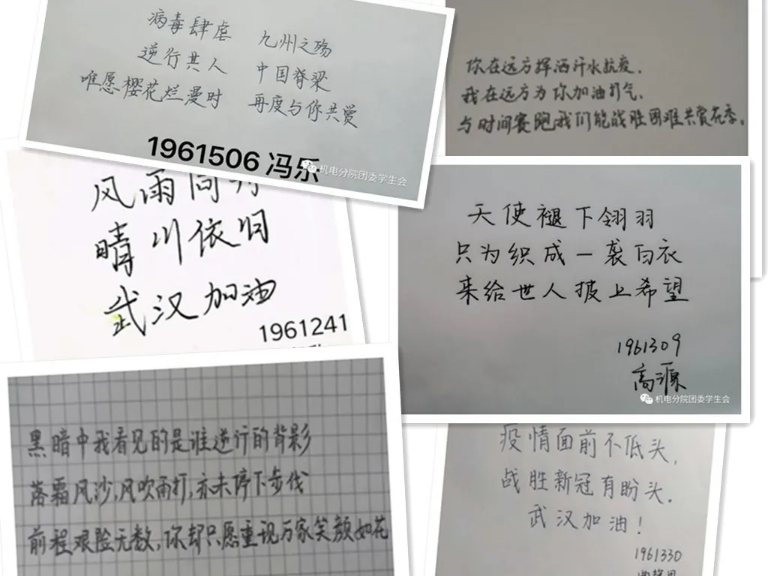 病毒肆虐 九州之殇
逆行其人 中国脊梁
唯愿樱花烂漫时 再度与你共赏
1961506 冯乐
机电分院团委学生会
你在远方挥洒汗水抗疫,
我在远方为你加油打气,
与时间赛跑我们能战胜困难共赏花季。
风雨同
晴川依旧
武汉加油
1961241
天使褪下翎羽
只为织成一袭白衣
来给世人披上希望
1961309
高源
机电分院团委学生会
黑暗中我看见的是谁逆行的背影
落霜风沙,风吹雨打,亦未停下步伐
前程艰险无数,你却只愿重现万家笑颜如花
疫情面前不低头,
战胜新冠有盼头.
武汉加油!
1961330